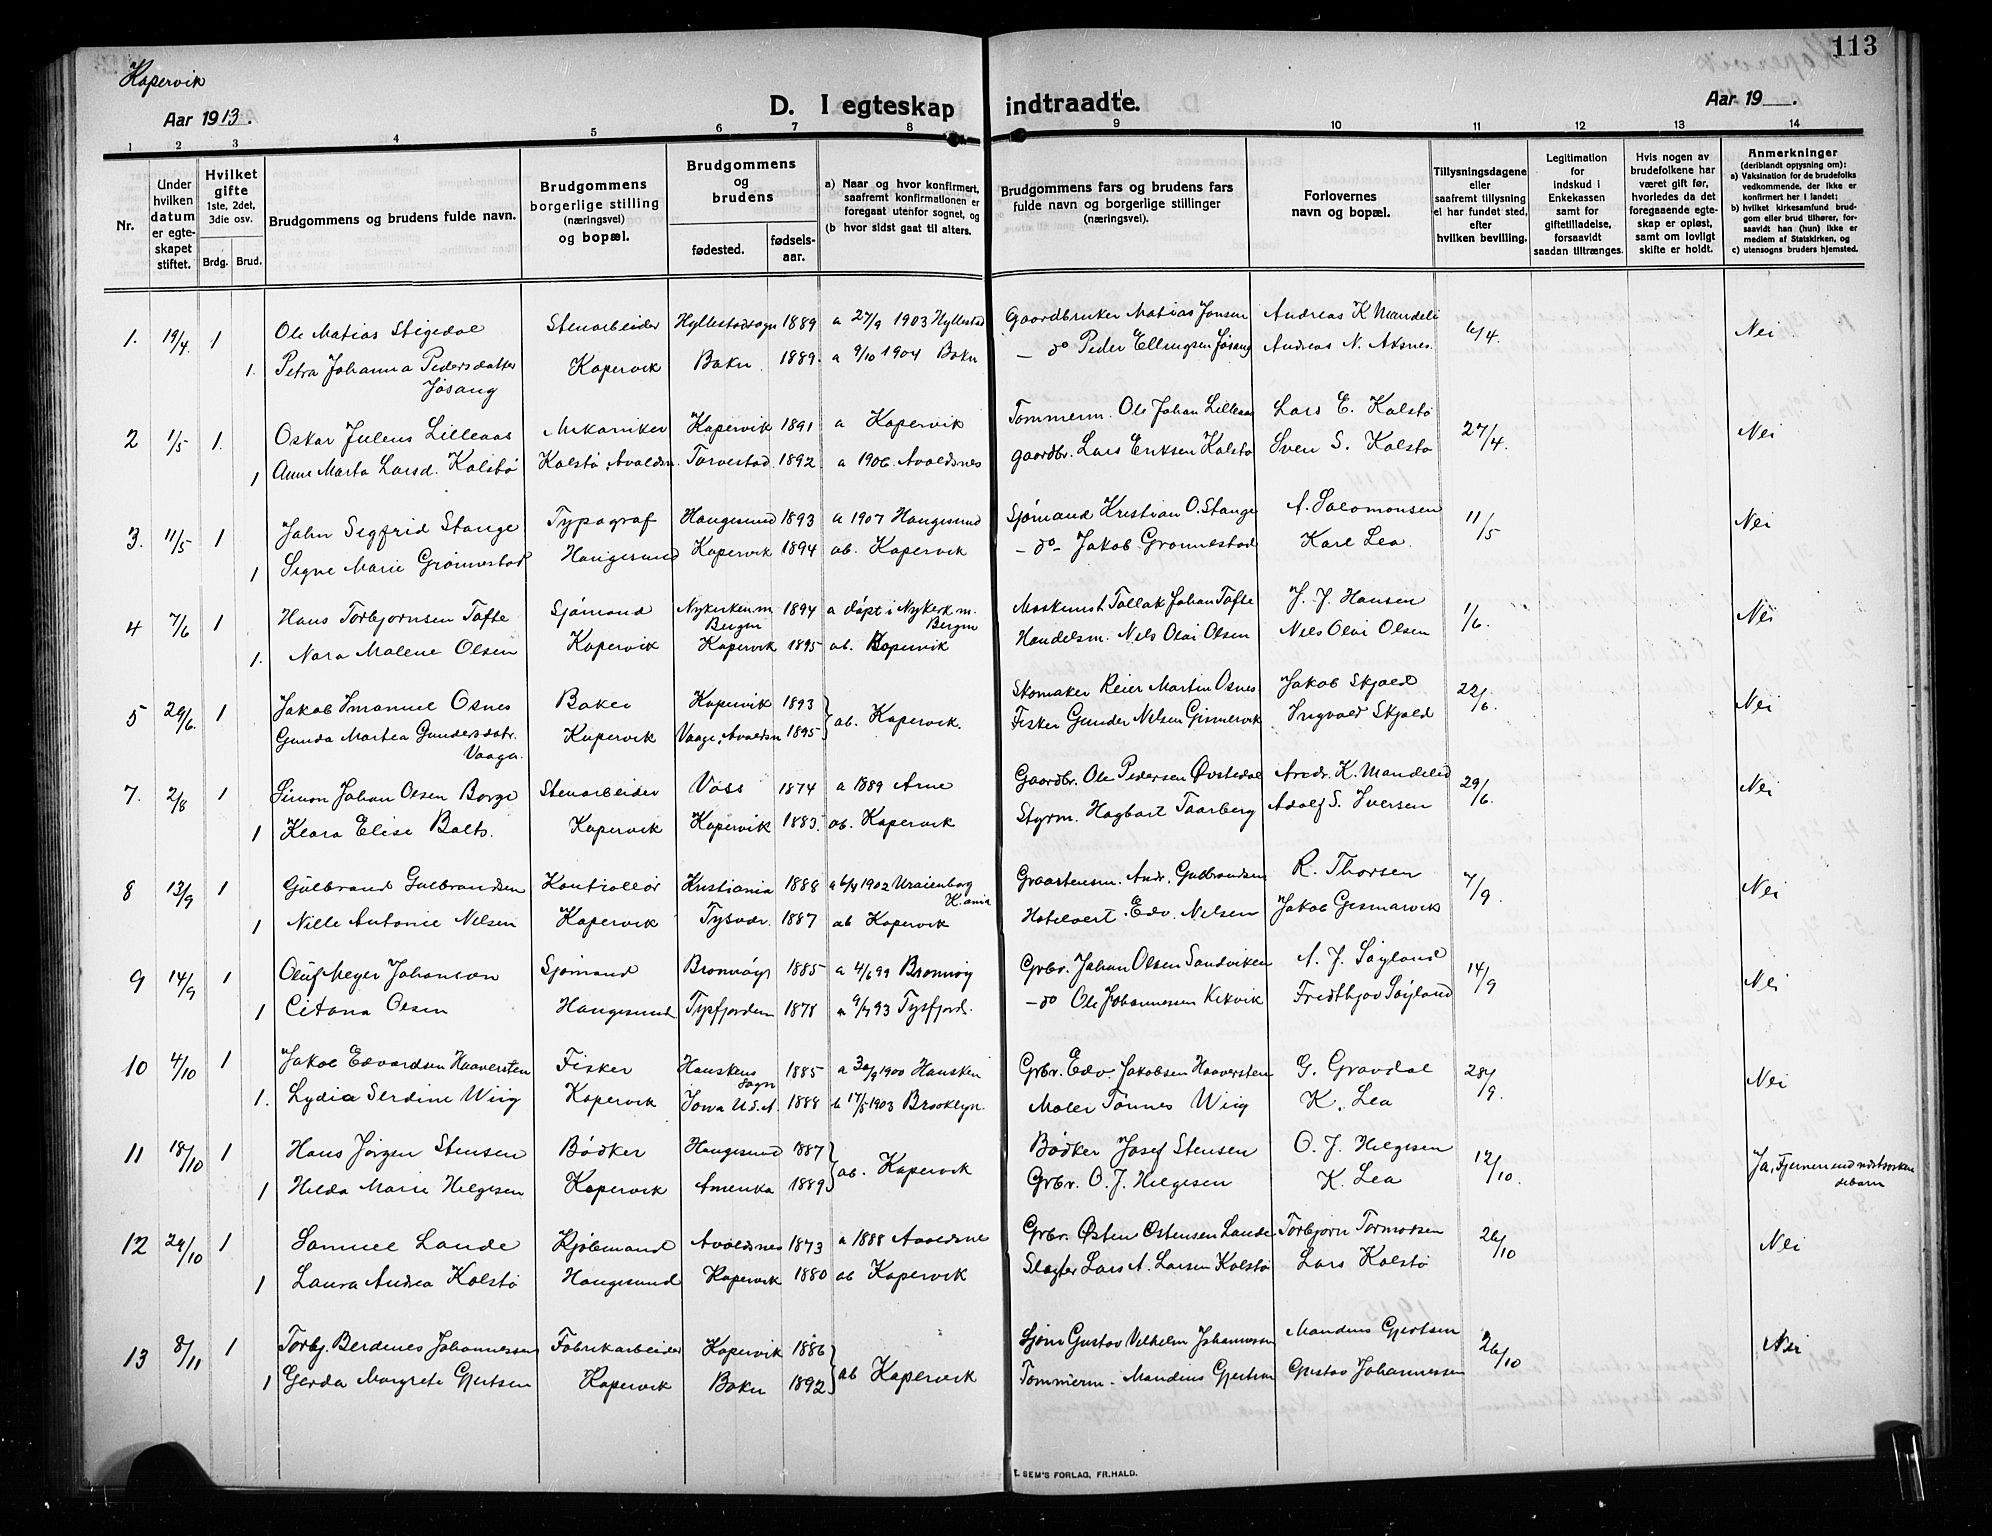 113
Kopervik
Aar 1913.
D. I egteskap indtraadte.
Aar 19 .
1 2 3 4 5 6 7 8 9 10 11 12 13 14
Nr.
Under hvilken datum er egteskapet stiftet.
Hvilket gifte 1ste, 2det, 3die osv.
Brdg. Brud.
Brudgommens og brudens fulde navn.
Brudgommens borgerlige stilling (næringsvei) og bopæl.
Brudgommens og brudens
fødested. fødselsaar.
a) Naar og hvor konfirmert, saafremt konfirmationen er foregaat utenfor sognet, og
(b hvor sidst gaat til alters.
Brudgommens fars og brudens fars fulde navn og borgerlige stillinger (næringsvei).
Forlovernes navn og bopæl.
Tillysningsdagene eller saafremt tillysning ei har fundet sted, efter hvilken bevilling.
Legitimation for indskud i Enkekassen samt for giftetilladelse, forsaavidt saadan tiltrænges.
Hvis nogen av brudefolkene har været gift før, hvorledes da det foregaaende egteskap er opløst, samt om lovligt skifte er holdt.
Anmerkninger (deriblandt opysning om): a) Vaksination for de brudefolks vedkommende, der ikke er konfirmert her i landet; b) hvilket kirkesamfund brudgom eller brud tilhører, forsaavidt han (hun) ikke er medlem af Statskirken, og c) utensogns bruders hjemsted.
1. 19/4. 1 Ole Matias Stigedal Stenarbeider Hyllestadsogn 1889 a 27/9 1903 Hyllestad Gaardbruker Matias Jonsen Andreas K Mandeli 6/4. Nei
1. Petra Johanna Pedersdatter Jøsang Kopervik Bokn 1889. a 9/10 1904 Bokn - do Peder Ellingsen Jøsang Andreas N. Aksnes.
2 1/5 1. Oskar Julens Lilleaas Mekaniker Kopervik 1891 a Kopervik Tømmerm. Ole Johan Lilleaas Lars E. Kolstø 27/4. Nei
1 Anne Marta Larsd. Kolstø Kolstø, Avaldsn. Torvestad 1892 a 1906. Avaldsnes gaardbr. Lars Eriksen Kolstø Sven S. Kolstø
3. 11/5 1 John Sigfrid Stange Typograf Haugesund 1893 a 1907 Haugesund Sjømand Kristian O. Stange A. Salomonsen 11/5 Nei
1 Signe Marie Grønnestad Haugesund Kopervik 1894 ab. Kopervik - do - Jakob Grønnestad Karl Lea.
4 7/6 1 Hans Torbjørnsen Tofte Sjømand Nykirken m. Bergen 1894 a døpt i Nykirk m. Bergen Maskinist Tollak Johan Tofte J. J. Hansen 1/6. Nei
1. Nora Malene Olsen Kopervik Kopervik 1895 ab. Kopervik Handelsm. Nils Olai Olsen Nils Olai Olsen
5 29/6. 1 Jakob Imanuel Osnes Baker Kopervik 1893 ab. Kopervik. Skomaker Reier Martin Osnes Jakob Skjold 22/6. Nei
Gunda Martea Gundersdatr. Vaaga. Kopervik Vaage, Avaldsn 1895 Fisker Gunder Nilsen Gismervik Ingvald Skjold
7. 2/8 1 Simon Johan Olsen Borge Stenarbeider Voss 1874 a 1889 Arne Gaardbr. Ole Pedersen Øvstedal Andr. K. Mandelid 29/6. Nei
1 Klara Elise Bolts. Kopervik Kopervik 1883. ab. Kopervik Styrm. Hagbart Taarberg Adolf S. Iversen
8 13/9 1 Gulbrand Gulbrandsen Kontrollør Kristiania 1888 1902 Uraienborg K.ania Graastensm. Andr. Gulbrandsen R. Thorsen 7/9. Nei
1 Nille Antonie Nilsen Kopervik Tysvær. 1887 ab Kopervik Hotelvert. Edv. Nilsen Jakob Gismarvik
9 14/9 1 Oluf Meyer Johanson Sjømand Brønnøys 1885 a 4/6 99 Brønnøy Grbr. Johan Olsen Sandviken A. J. Søyland 14/9 Nei
1 Citana Olsen Haugesund Tysfjorden 1878 a 9/7 93 Tysfjord. - do Ole Johannessen Kikvik Fridthjov Søyland
10 4/10 1 Jakob Edvardsen Haaversten Fisker Hauskens sogn 1885 a 30/9 1900 Hausken Grbr. Edv. Jakobsen Haaversten G. Gravdal 28/9. Nei
1. Lydia Serdine Wiig Kopervik Iowa U.S.A. 1888 17/5 1903 Brooklyn. Maler Tønnes Wiig K. Lea
11 18/10 1 Hans Jørgen Stensen Bødker Haugesund 1887 ab. Kopervik Bødker Josef Stensen O. J. Helgesen 12/10. Ja, Fjernere end næstsøskendebarn
1 Hilda Marie Helgesen Kopervik Amerika 1889 Grbr. O. J. Helgesen K. Lea
12 29/10 1 Samuel Lande Kjøbmand Avaldsnes 1873 a 1888 Avaldsnes Grbr. Østen Østensen Lande Torbjørn Tormodsen 26/10 Nei
1 Laura Andrea Kolstø Haugesund Kopervik 1880 ab Kopervik Slagter Lars A. Larsen Kolstø Lars Kolstø
13 8/11 1 Torbj. Berdenes Johannessen Fabrikarbeider Kopervik 1886 ab Kopervik Sjøm Gustav Vilhelm Johannessen Mandius Gjertsen 26/10 Nei
1 Gerda Margrete Gjertsen Kopervik Bokn 1892 Tømmerm. Mandius Gjertsen Gustav Johannessen
E. SEM'S FORLAG, FR.HALD.